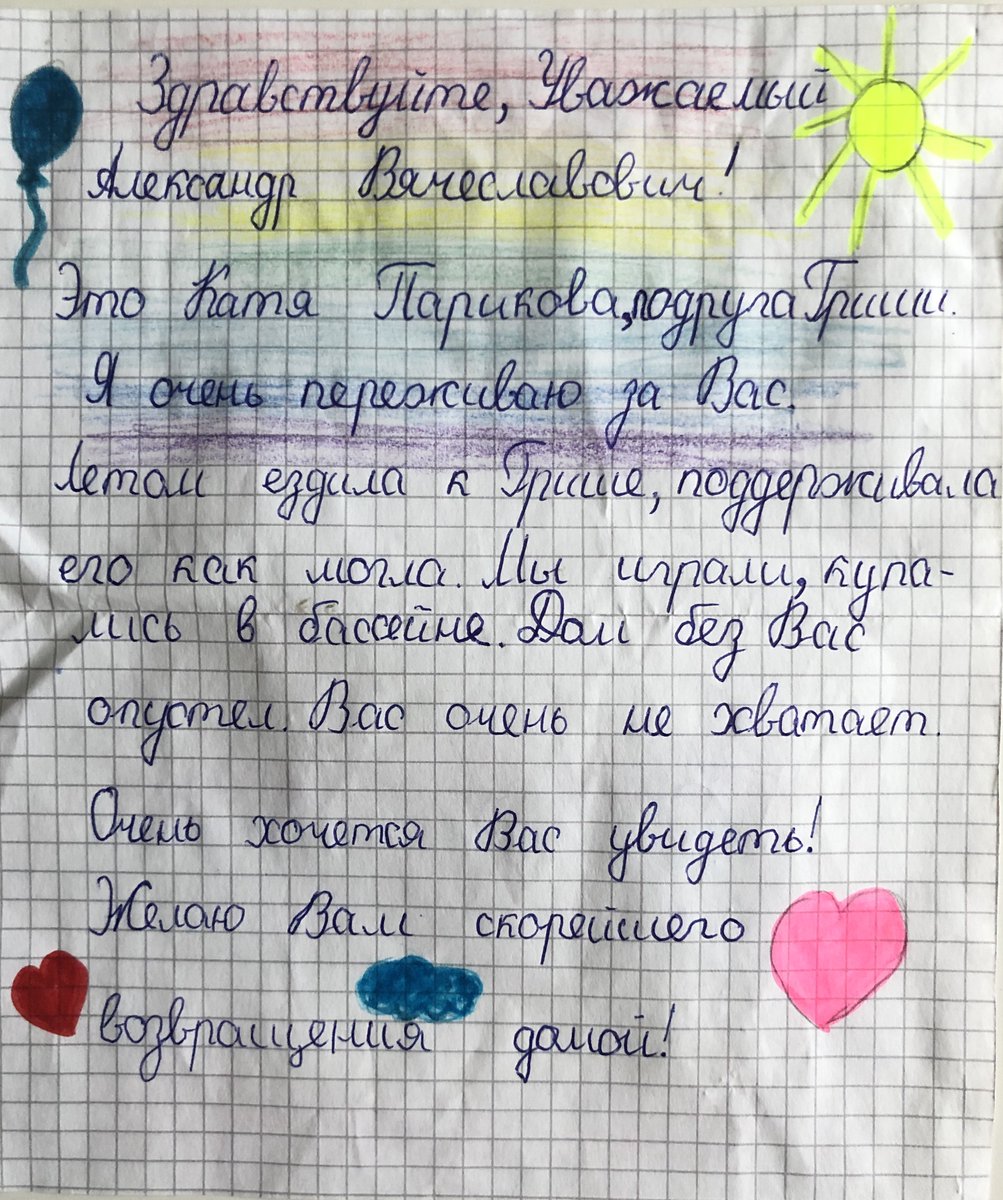 Здравствуйте, Уважаемый
Александр Вячеславович!
Это Катя Парикова, подруга Гриши.
Я очень переживаю за Вас.
Летом ездила к Грише, поддерживала
его как могла. Мы играли, купа-
лись в бассейне. Дом без Вас
опустел. Вас очень не хватает.
Очень хочется Вас увидеть!
Желаю Вам скорейшего
возвращения домой!